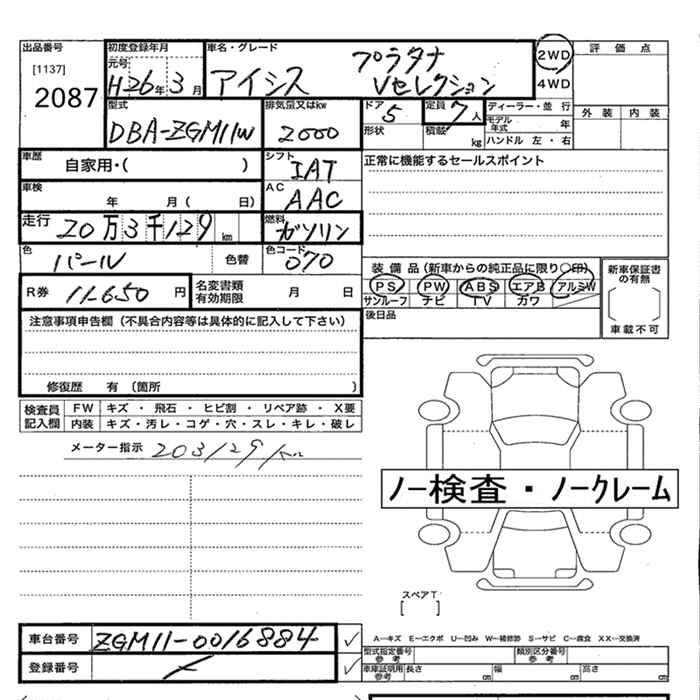 出品番号 初度登録年月 車名・グレード 2WD 評価点
[1137] 元号 プラタナ
2087 H26年3月 アイシス Vセレクション 4WD
型式 排気量又はkw ドア 定員 ディーラー・並行 外装 内装
DBA-ZGM11W 2000 5 7人 モデル年式 年
形状 積載 kg ハンドル 左・右
車歴 自家用・( ) シフト IAT 正常に機能するセールスポイント
車検 年 月( 日) AC AAC
走行 20万3千129km 燃料 ガソリン
色 パール 色替 色コード 070
装備品(新車からの純正品に限り○印) 新車保証書の有無
R券 11650円 名変書類有効期限 月 日 PS PW ABS エアB アルミW
サンルーフ ナビ TV カワ
注意事項申告欄(不具合内容等は具体的に記入して下さい) 後日品 車載不可
修復歴 有(箇所 )
検査員 FW キズ・飛石・ヒビ割・リペア跡・X要
記入欄 内装 キズ・汚レ・コゲ・穴・スレ・キレ・破レ
メーター指示 203129km
ノー検査・ノークレーム
スペアT
[ ]
車台番号 ZGM11-0016884 A―キズ E―エクボ U―凹み W―補修跡 S―サビ C―腐食 XX―交換済
登録番号 型式指定番号 参考 類別区分番号 参考
車庫証明用 参考 長さ cm 幅 cm 高さ cm